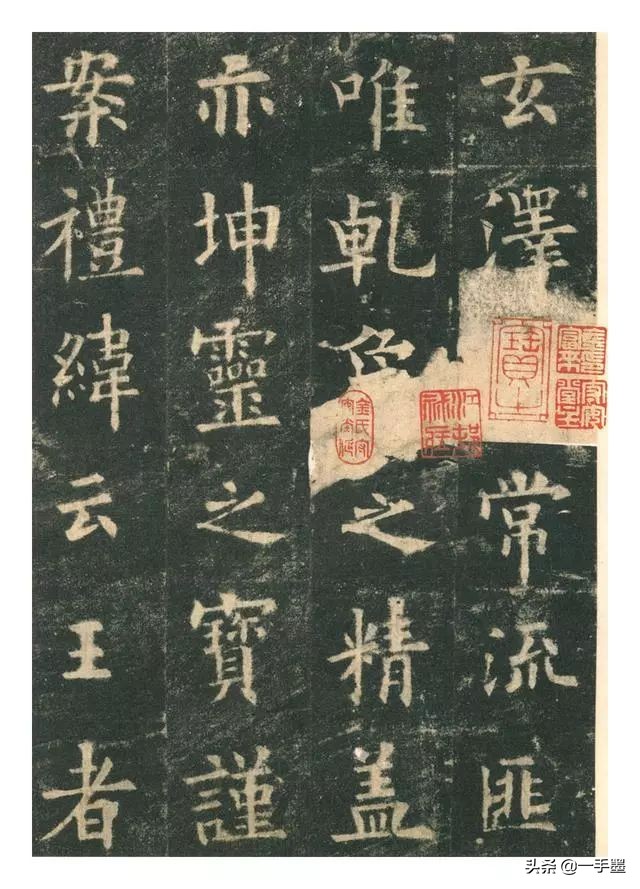 玄澤常流匪
唯乹之精盖
亦坤靈之寶謹
案禮緯云王者
头条 @一手墨